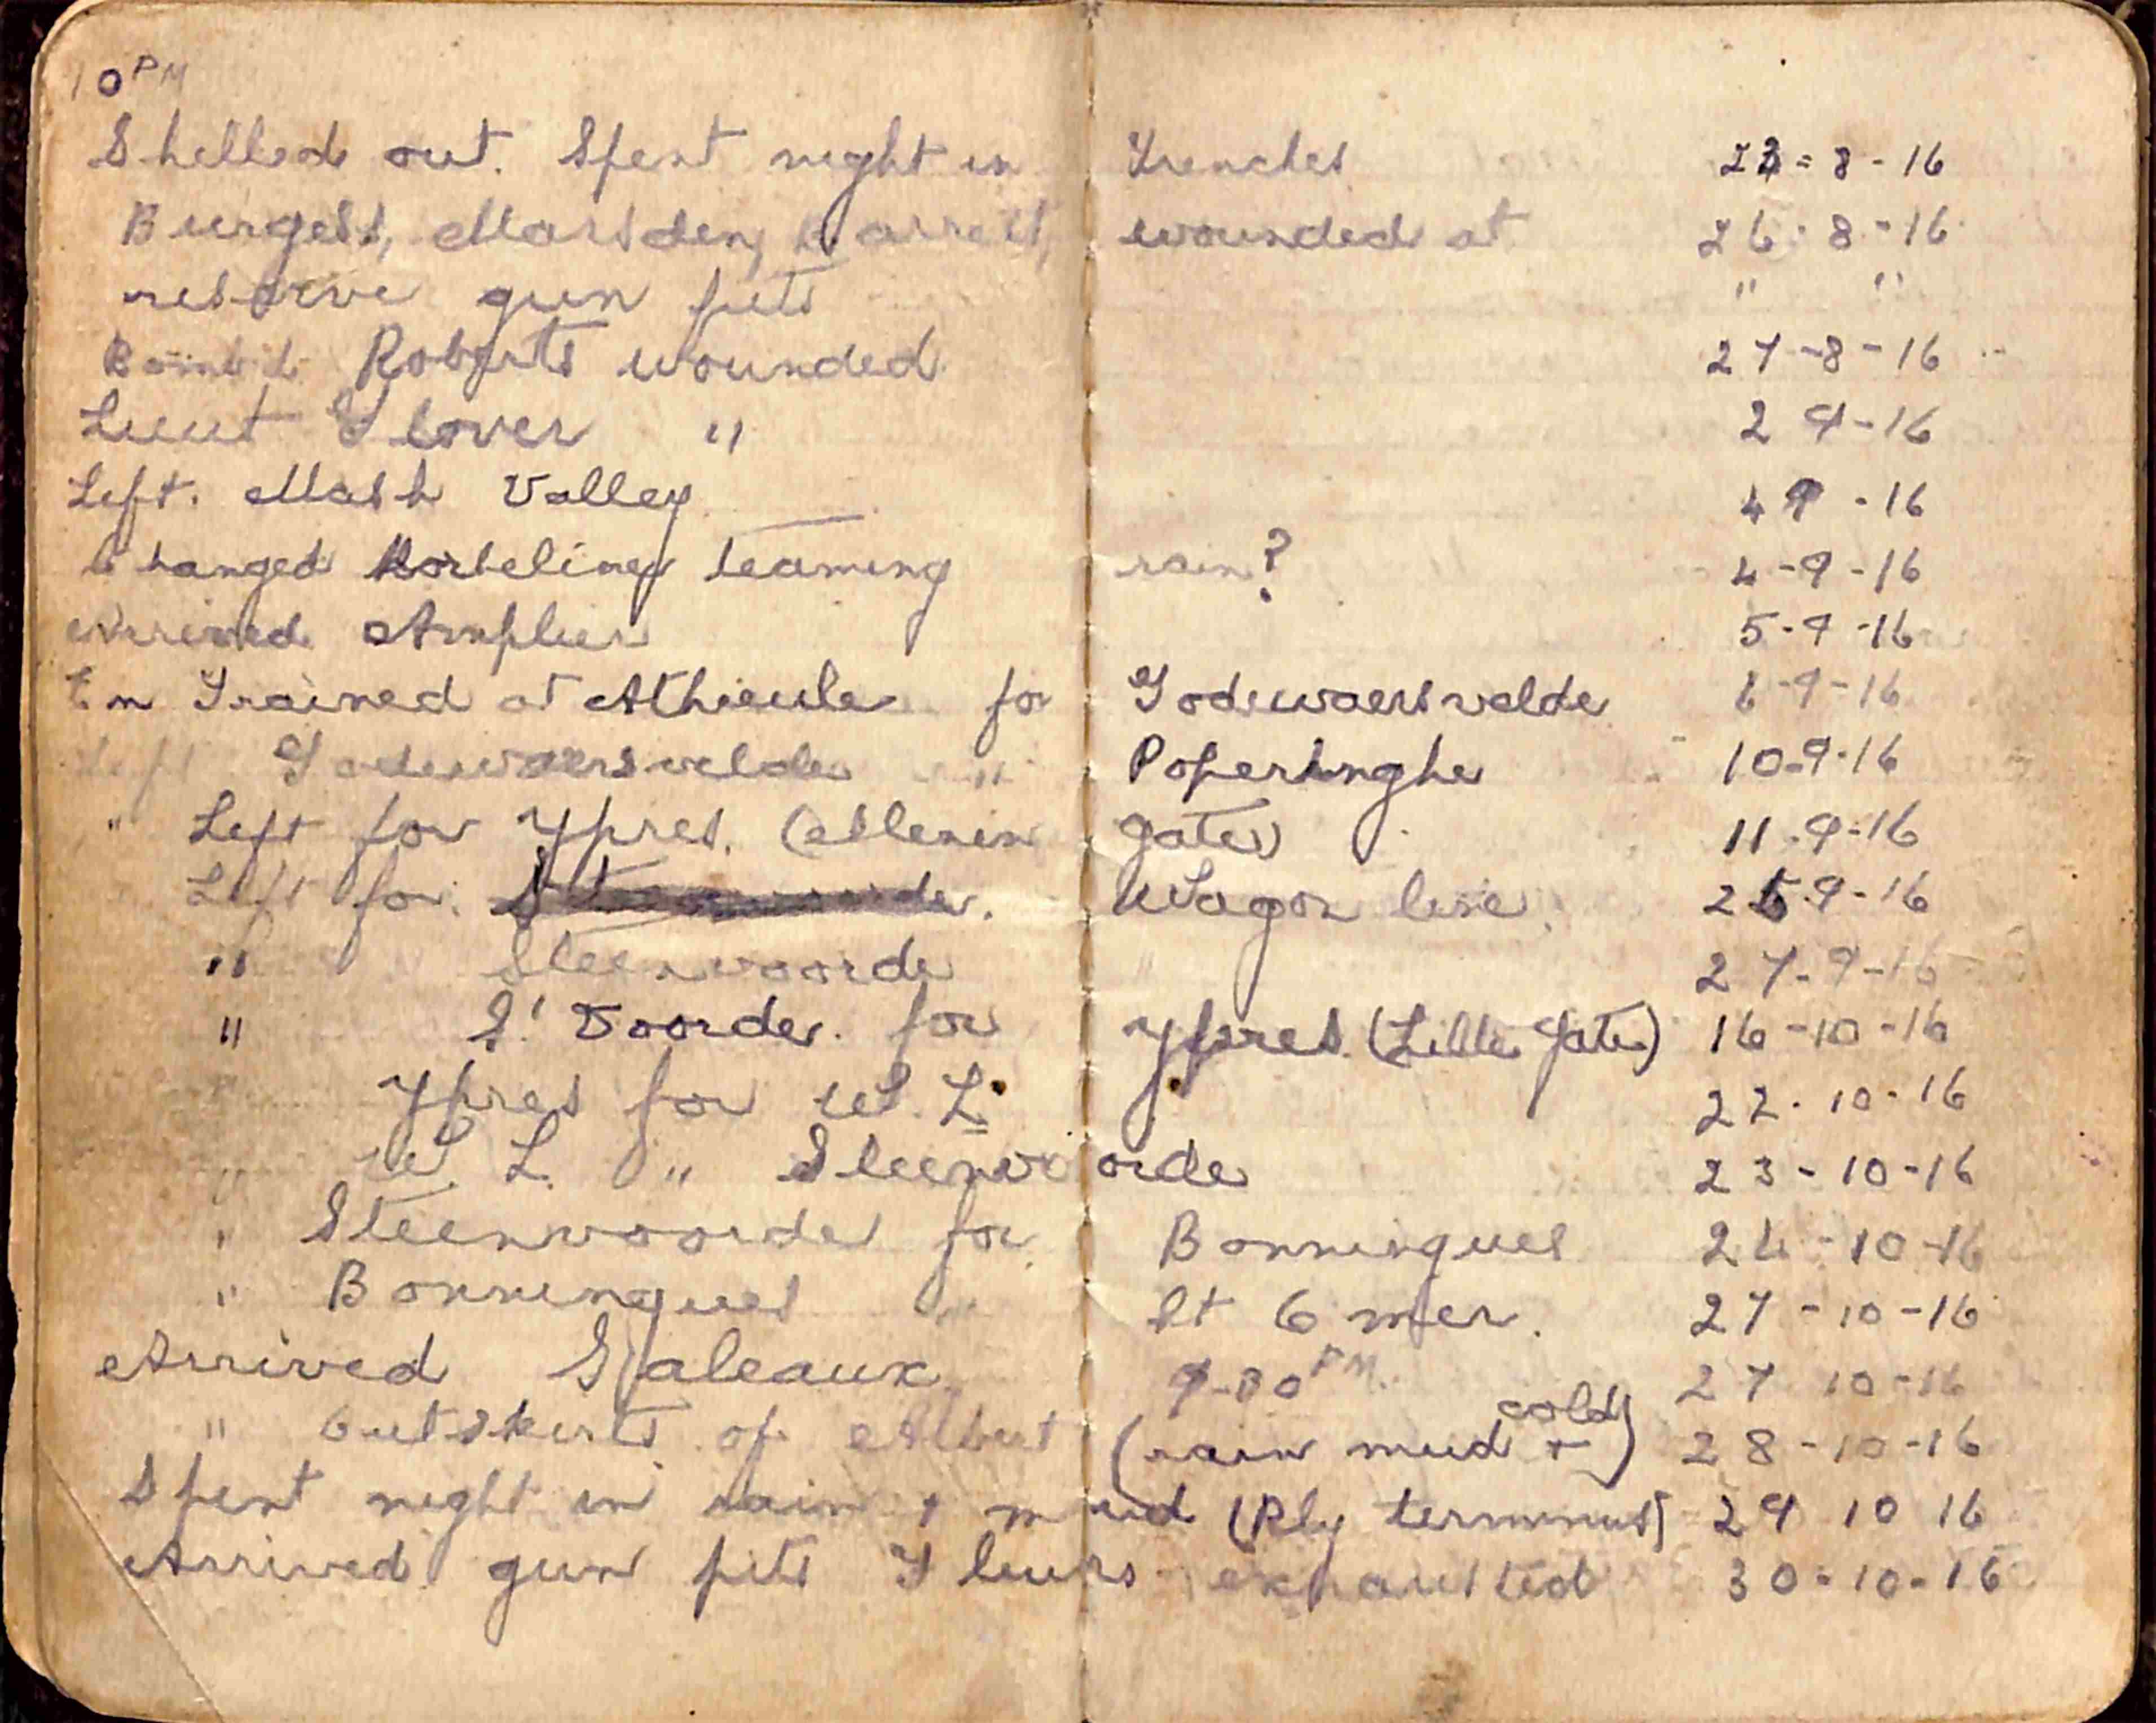 10 PM
Shelled out. Spent night in Trenches 23-8-16
Burgess, Marsden, Barrett, wounded at 26-8-16
reserve gun pits " "
Bombd Roberts wounded 27-8-16
Lieut Glover " 2 9-16
Left. Mash Valley 4 9-16
Changed teaming rain? 4-9-16
Arrived Amplier 5-9-16
En Trained at Athieule for Godewaersvelde 6-9-16
Left Godewaersvelde " Poperhinghe 10-9-16
" Left for Ypres. (Menin gate) 11-9-16
Left for. Wagon line. 25-9-16
" Steenvoorde 27-9-16
" S' Voorde. for Ypres (Lille gate) 16-10-16
Ypres for W. L. 22-10-16
" W. L. " Steenvoorde 23-10-16
" Steenvoorde for Bonningues 24-10-16
" Bonningues " St Omer. 27-10-16
Arrived Saleaux 9-30 PM. 27 10-16
" outskirts of Albert (rain mud + cold) 28-10-16
Spent night in rain + mud (Rly terminus) 29 10 16
Arrived gun pits Fleurs exhausted 30-10-16